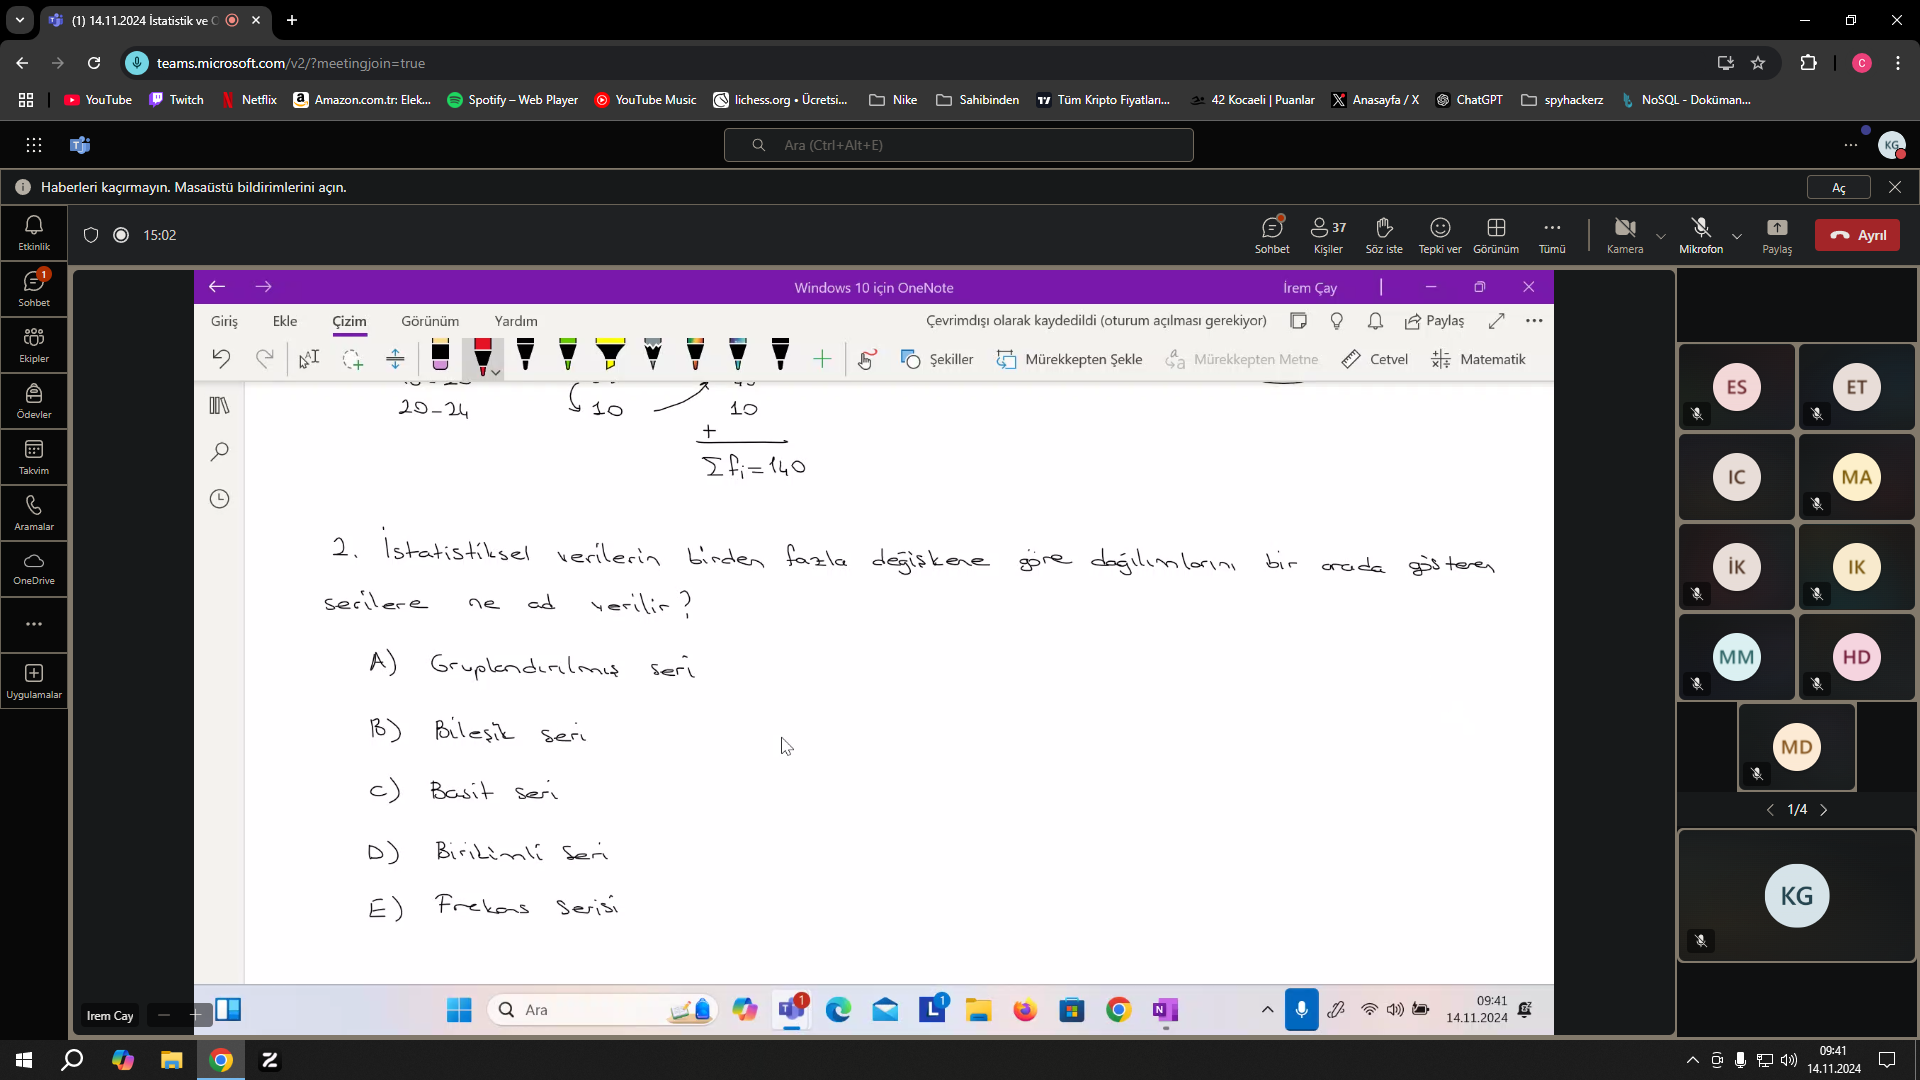 (1) 14.11.2024 İstatistik ve O
teams.microsoft.com/v2/?meetingjoin=true
YouTube
Twitch
Netflix
Amazon.com.tr: Elek...
Spotify – Web Player
YouTube Music
lichess.org • Ücretsi...
Nike
Sahibinden
Tüm Kripto Fiyatları...
42 Kocaeli | Puanlar
Anasayfa / X
ChatGPT
spyhackerz
NoSQL - Doküman...
Ara (Ctrl+Alt+E)
KG
Haberleri kaçırmayın. Masaüstü bildirimlerini açın.
Aç
Etkinlik
1
Sohbet
Ekipler
Ödevler
Takvim
Aramalar
OneDrive
Uygulamalar
15:02
Sohbet
37
Kişiler
Söz iste
Tepki ver
Görünüm
Tümü
Kamera
Mikrofon
Paylaş
Ayrıl
Windows 10 için OneNote
İrem Çay
Giriş
Ekle
Çizim
Görünüm
Yardım
Çevrimdışı olarak kaydedildi (oturum açılması gerekiyor)
Paylaş
Şekiller
Mürekkepten Şekle
Mürekkepten Metne
Cetvel
Matematik
20-24 10 10
+
Σfi=140
2. İstatistiksel verilerin birden fazla değişkene göre dağılımlarını bir arada gösteren
serilere ne ad verilir?
A) Gruplandırılmış seri
B) Bileşik seri
C) Basit seri
D) Birikimli seri
E) Frekans serisi
ES
ET
IC
MA
İK
IK
MM
HD
MD
1/4
KG
Irem Cay
Ara
1
1
09:41
14.11.2024
09:41
14.11.2024